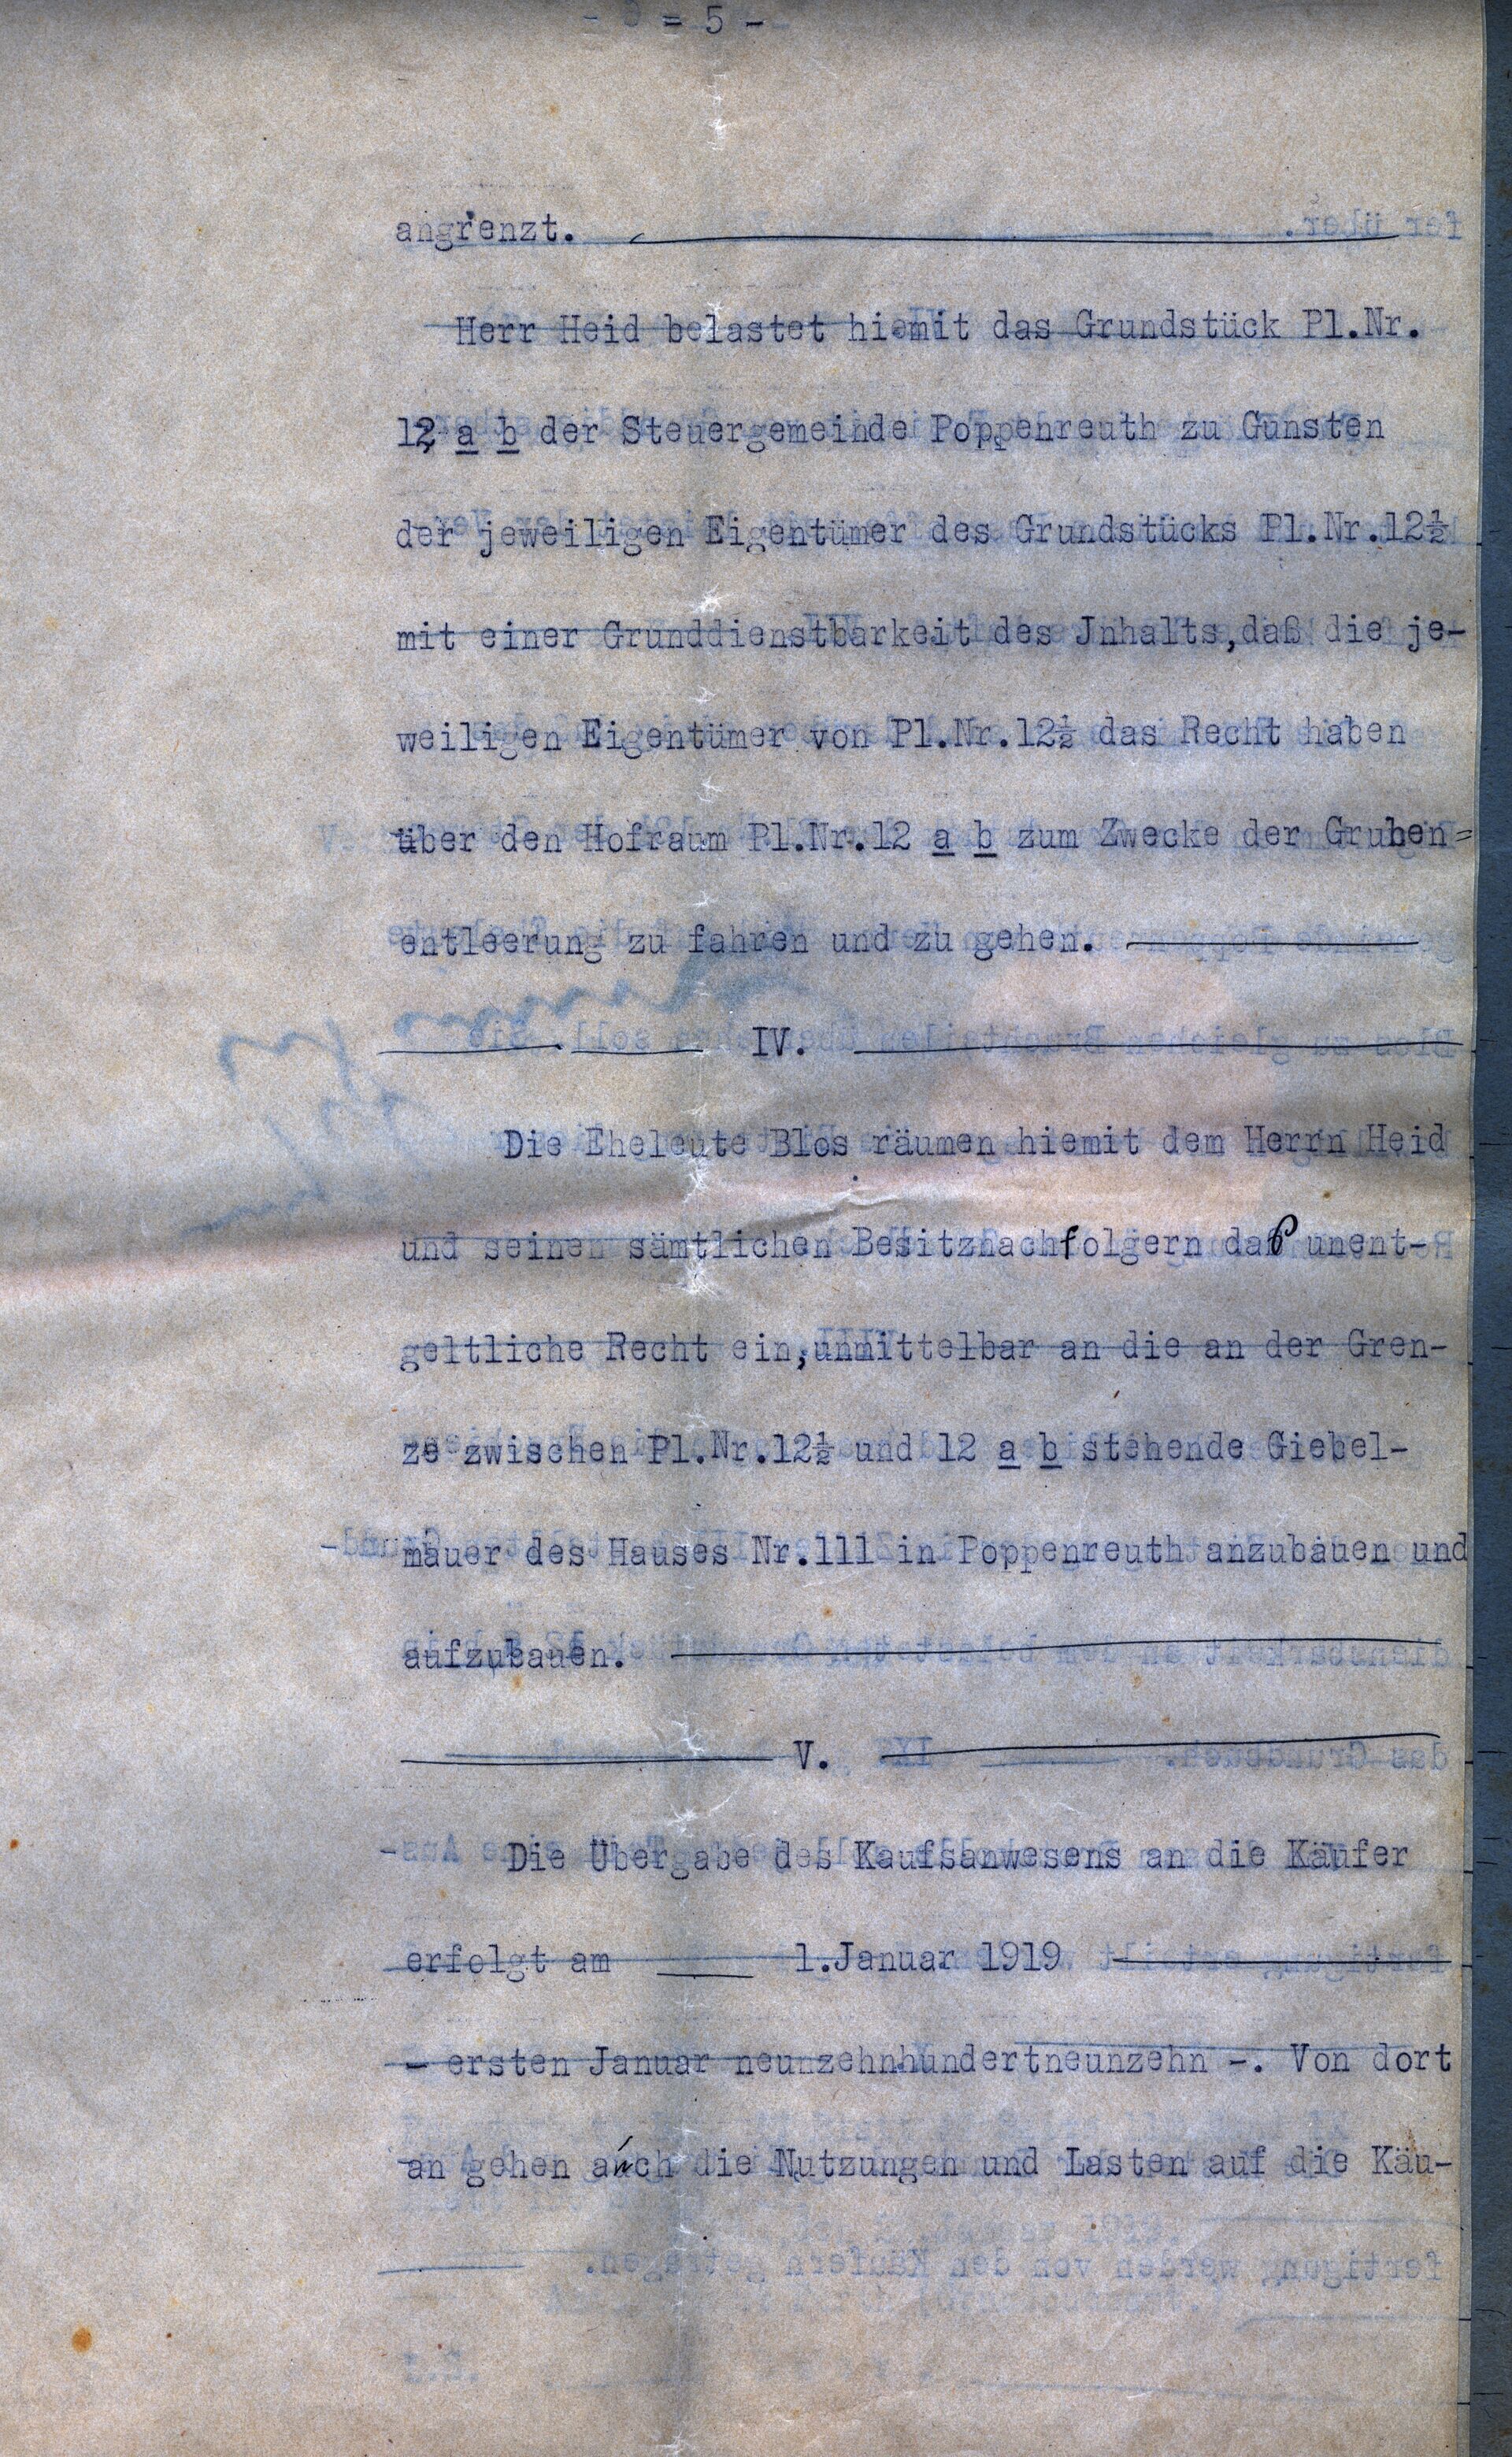 = 5 -
angrenzt.
Herr Heid belastet hiemit das Grundstück Pl.Nr.
12 a b der Steuergemeinde Poppenreuth zu Gunsten
der jeweiligen Eigentümer des Grundstücks Pl.Nr.12½
mit einer Grunddienstbarkeit des Jnhalts,daß die je-
weiligen Eigentümer von Pl.Nr.12½ das Recht haben
über den Hofraum Pl.Nr.12 a b zum Zwecke der Gruben=
entleerung zu fahren und zu gehen.
IV.
Die Eheleute Blos räumen hiemit dem Herrn Heid
und seinen sämtlichen Besitznachfolgern das unent-
geltliche Recht ein,unmittelbar an die an der Gren-
ze zwischen Pl.Nr.12½ und 12 a b stehende Giebel-
mauer des Hauses Nr.111 in Poppenreuth anzubauen und
aufzubauen.
V.
Die Übergabe des Kaufsanwesens an die Käufer
erfolgt am 1.Januar 1919
- ersten Januar neunzehnhundertneunzehn -. Von dort
an gehen auch die Nutzungen und Lasten auf die Käu-